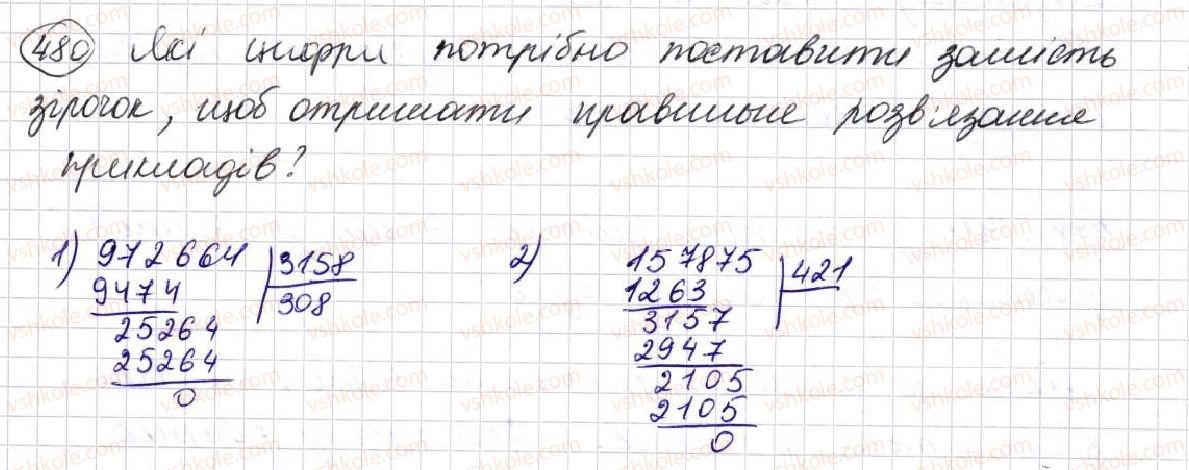 480 Які цифри потрібно поставити замість
зірочок, щоб отримати правильне розв'язання
прикладів?
1) 972664 3158
9474 308
25264
25264
0
2) 157875 421
1263
3157
2947
2105
2105
0